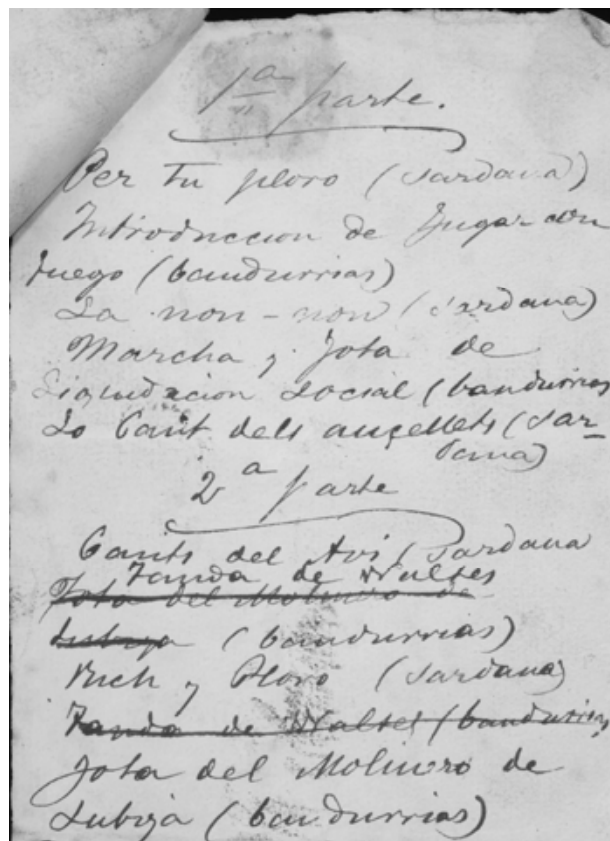 1ª parte.
Per tu ploro (sardana)
Introduccion de Jugar con
fuego (bandurrias)
La non-non (sardana)
Marcha y Jota de
Liquidacion social (bandurrias
Lo Cant dels aucellets (sar-
dana)
2ª parte
Cants del Avi (sardana
Tanda de Walses
Jota del Molinero de
Subiza (bandurrias)
y Ploro (sardana)
Tanda de Walses (bandurrias
Jota del Molinero de
Subiza (bandurrias)